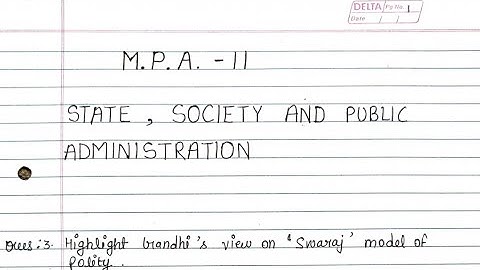 DELTA Pg No. 1
Date / /
M.P.A. - 11
STATE , SOCIETY AND PUBLIC
ADMINISTRATION
Ques:3. Highlight Grandhi's view on 'Swaraj' model of
Polity.